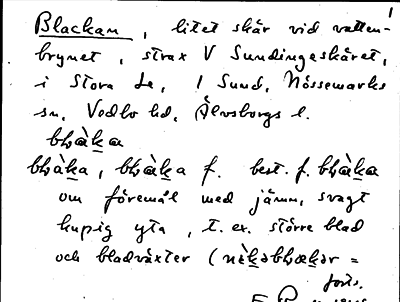 1
Blackan, litet skär vid vatten-
brynet, strax V Sundingeskäret,
i Stora Le, 1 Sund, Nössemarks
sn, Vedbo hd, Älvsborgs l.
bhàka
bhàka, bhàka f. best. f. bhàka
om föremål med jämn, svagt
kupig yta, t. ex. större blad
och bladväxter (nèkəbhækər =
forts.